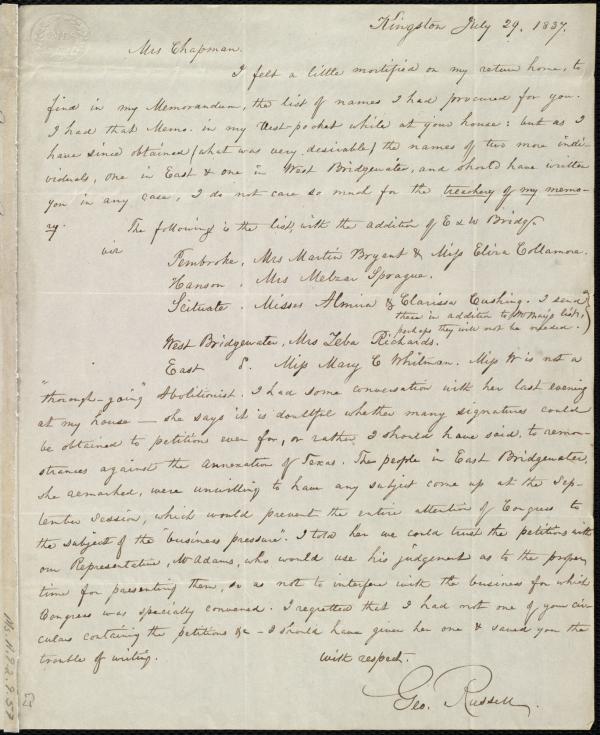 Kingston July 29. 1837.
Mrs Chapman.
I felt a little mortified on my return home, to
find in my Memorandum, the list of names I had procured for you.
I had that Memo. in my Vest-pocket while at your house: but as I
have since obtained (what was very desirable) the names of two more indi-
viduals, one in East & one in West Bridgewater, and should have written
you in any case, I do not care so much for the treachery of my memo-
ry. The following is the list, with the addition of E & W Bridgr.
viz
Pembroke, Mrs Martin Bryant & Miss Eliza Collamore.
Hanson. Mrs Melzar Sprague.
Scituate. Misses Almira & Clarissa Cushing. I send
these in addition to Mr May's list,
perhaps they will not be needed.
West Bridgewater, Mrs Zeba Richards.
East Miss Mary C Whitman. Miss W is not a
"through-going" Abolitionist. I had some conversation with her last evening
at my house — she says it is doubtful whether many signatures could
be obtained to petition even for, or rather, I should have said, to remon-
strances against the Annexation of Texas. The people in East Bridgewater,
she remarked, were unwilling to have any subject come up at the Sep-
tember Session, which would prevent the entire attention of Congress to
the subject of the "business pressure". I told her we could trust the petitions with
our Representative, Mr Adams, who would use his judgement as to the proper
time for presenting them, so as not to interfere with the business for which
Congress was specially convened. I regretted that I had not one of your cir-
culars containing the petitions &c - I should have given her one & saved you the
trouble of writing. With respect.
Geo. Russell.
Ms. A.9.2.9.57